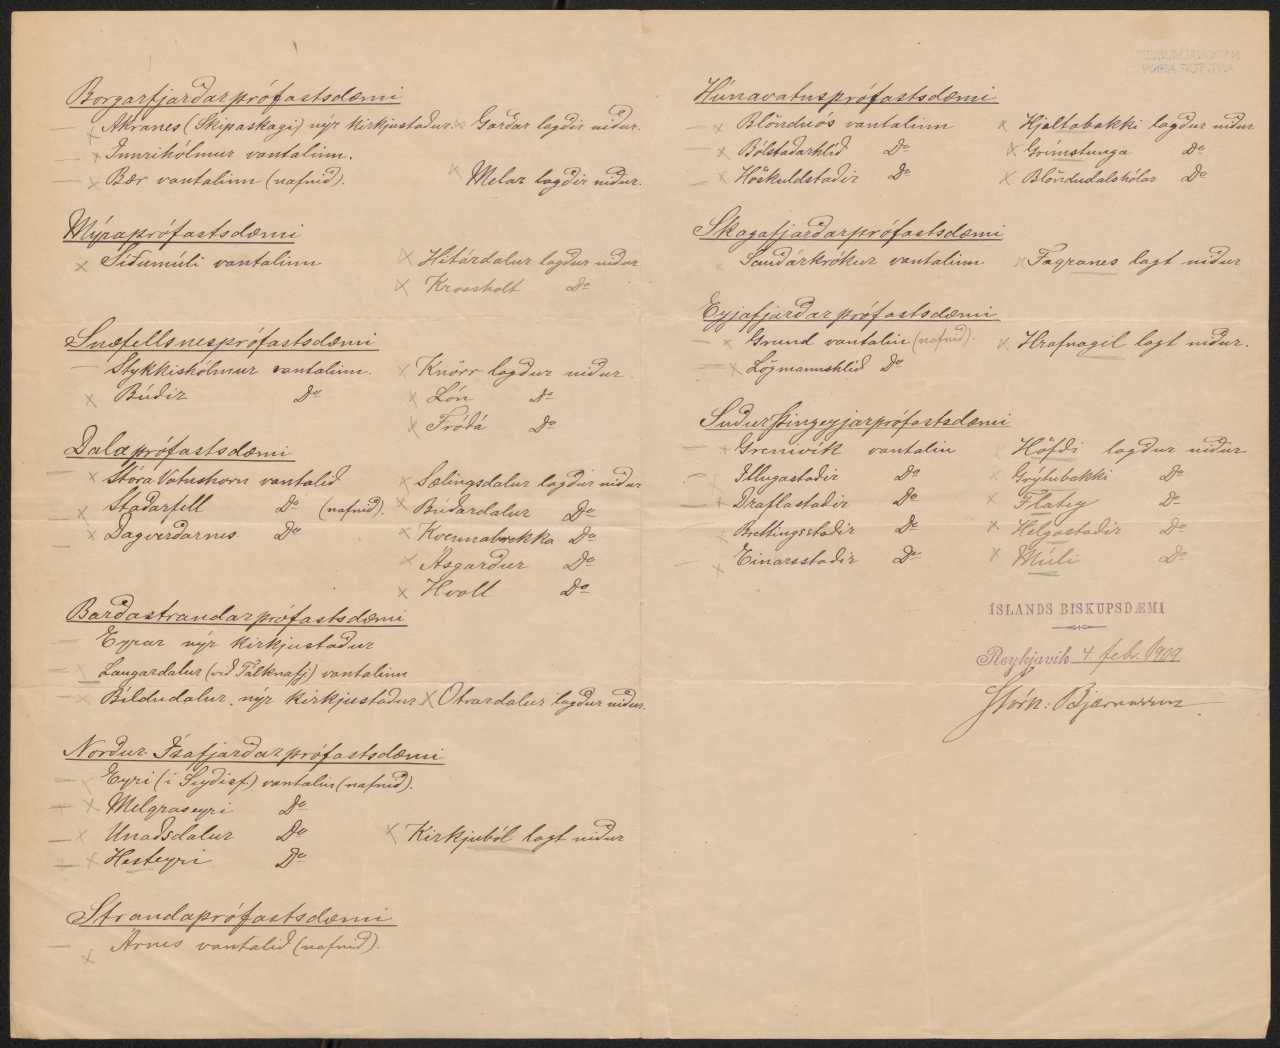 Borgarfjarðarprófastsdæmi
Akranes (Skipaskagi) nýr kirkjustaður. Garðar lagðir niður.
Innrihólmur vantalinn.
Bær vantalinn (nafnið). Melar lagðir niður.
Mýraprófastsdæmi
Síðumúli vantalinn Hítárdalur lagður niður
Krossholt Do
Snæfellsnesprófastsdæmi
Stykkishólmur vantalinn. Knörr lagður niður.
Búðir Do Lón Do
Fróðá Do
Dalaprófastsdæmi
Stóra Vatnshorn vantalið Sælingsdalur lagður niður
Staðarfell Do (nafnið). Búðardalur Do
Dagverðarnes Do Kvennabrekka Do
Ásgarður Do
Hvoll Do
Barðastrandarprófastsdæmi
Eyrar nýr kirkjustaður
Laugardalur (við Tálknafj) vantalinn
Bíldudalur, nýr kirkjustaður Otrardalur lagður niður.
Norður-Ísafjarðarprófastsdæmi
Eyri (í Seyðisf.) vantalin (nafnið).
Melgraseyri Do
Unaðsdalur Do Kirkjuból lagt niður
Hesteyri Do
Strandaprófastsdæmi
Árnes vantalið (nafnið).
Húnavatnsprófastsdæmi
Blönduós vantalinn Hjaltabakki lagður niður
Bólstaðarhlíð Do Grímstunga Do
Höskuldstaðir Do Blöndudalshólar Do
Skagafjarðarprófastsdæmi
Sauðárkrókur vantalinn Fagranes lagt niður
Eyjafjarðarprófastsdæmi
Grund vantalin (nafnið). Hrafnagil lagt niður.
Lögmannshlíð Do
Suðurþingeyjarprófastsdæmi
Grenivík vantalin Höfði lagður niður
Illugastaðir Do Grýtubakki Do
Draflastaðir Do Flatey Do
Brettingsstaðir Do Helgastaðir Do
Einarsstaðir Do Múli Do
ÍSLANDS BISKUPSDÆMI
Reykjavík 4 febr. 1909
Þórh: Bjarnarson